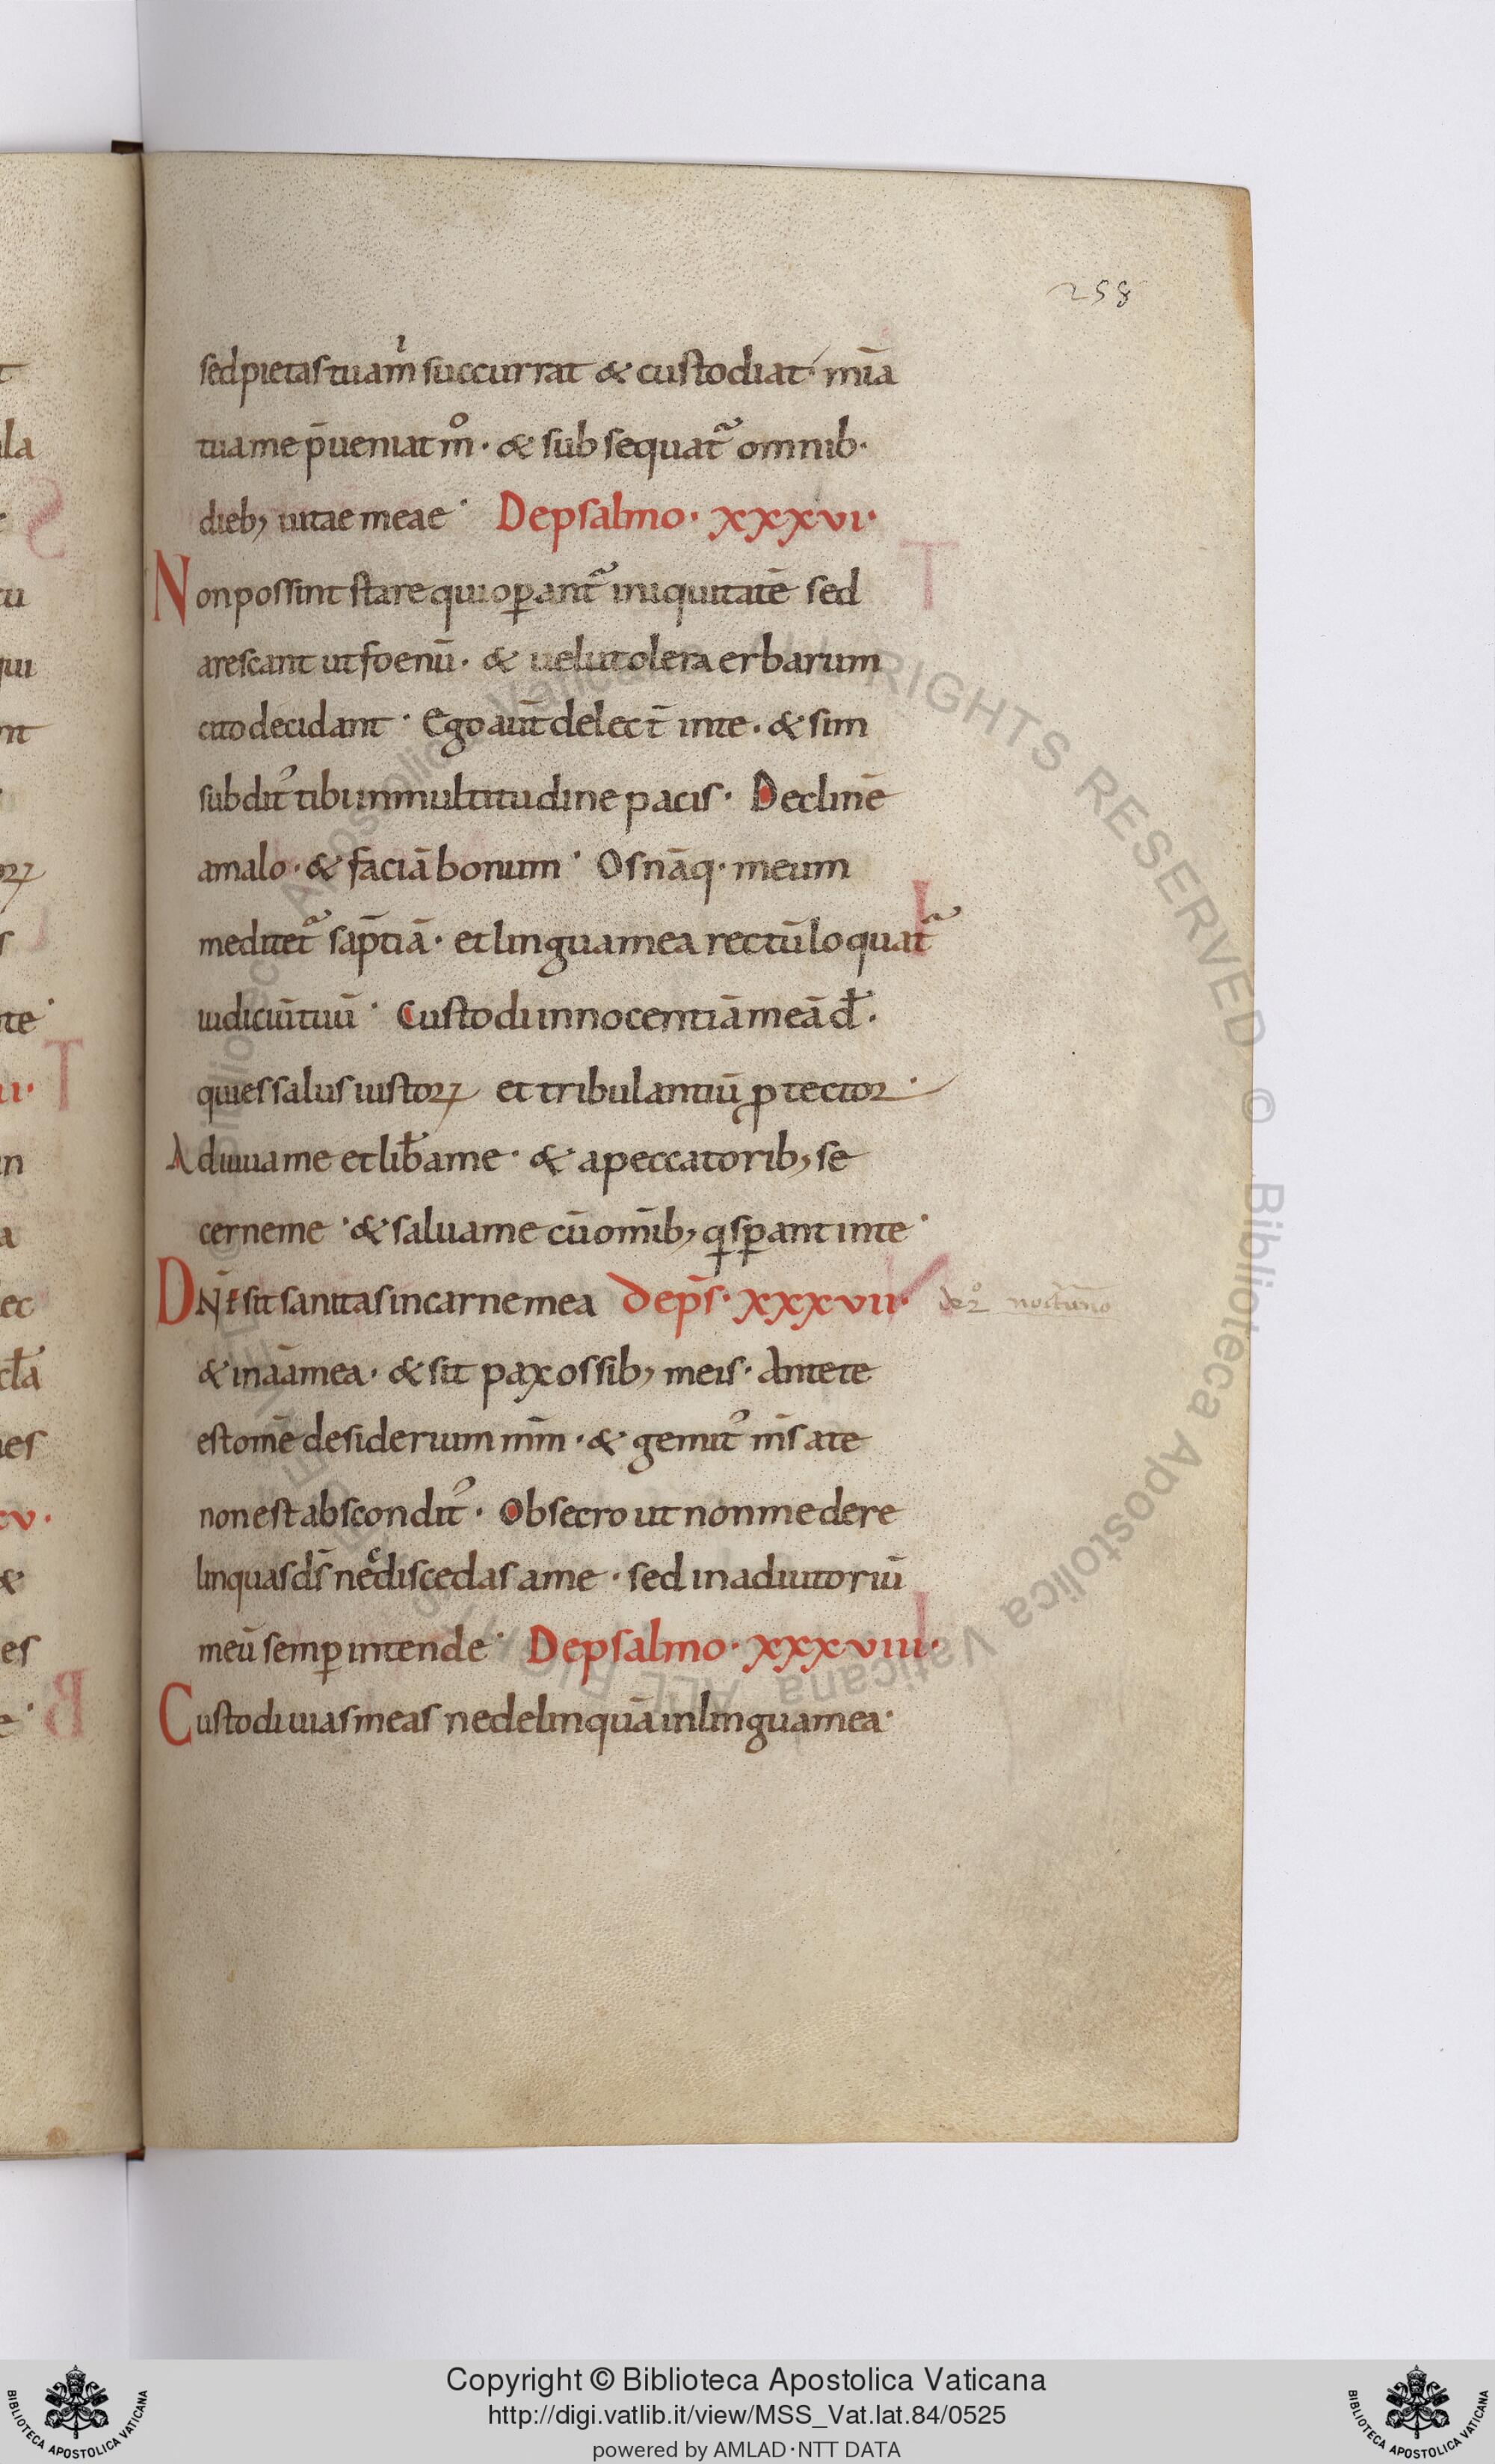 258
sed pietas tua m̉ succurrat & custodiat· mīa
tua me p̄ueniat m̊· & subsequat̃ omnib·
dieb; uitae meae· De psalmo· xxxvi·
Non possint stare qui op̲ant̃ iniquitatē sed
arescant ut foenū· & uelut olera erbarum
cito decidant· Ego aut̄ delect̄ in te· & sim
subdit᾿ tibi in multitudine pacis· Declinē
a malo· & faciā bonum· Os nāq· meum
meditet̃ sap̄tiā· et lingua mea rectū loquat̃
iudiciū tuū· Custodi innocentiā meā d̄s·
qui es salus iustoꝝ et tribulantiū ꝓtector·
Adiuua me et lib̄a me· & a peccatorib; se
cerne me· & salua me cū om̄ib; q̄ sꝑant in te·
DN̄E sit sanitas in carne mea de ps̄· xxxvii·
& in aā mea· & sit pax ossib; meis· Ante te
est om̄e desiderium mm̄· & gemit᾿ m̄s a te
non est abscondit᾿· Obsecro ut non me dere
linquas ds̄ nec discedas a me· sed in adiutoriū
meū semꝑ intende· De psalmo· xxxviii·
Custodi uias meas ne delinquā in lingua mea·
Copyright © Biblioteca Apostolica Vaticana
http://digi.vatlib.it/view/MSS_Vat.lat.84/0525
powered by AMLAD·NTT DATA